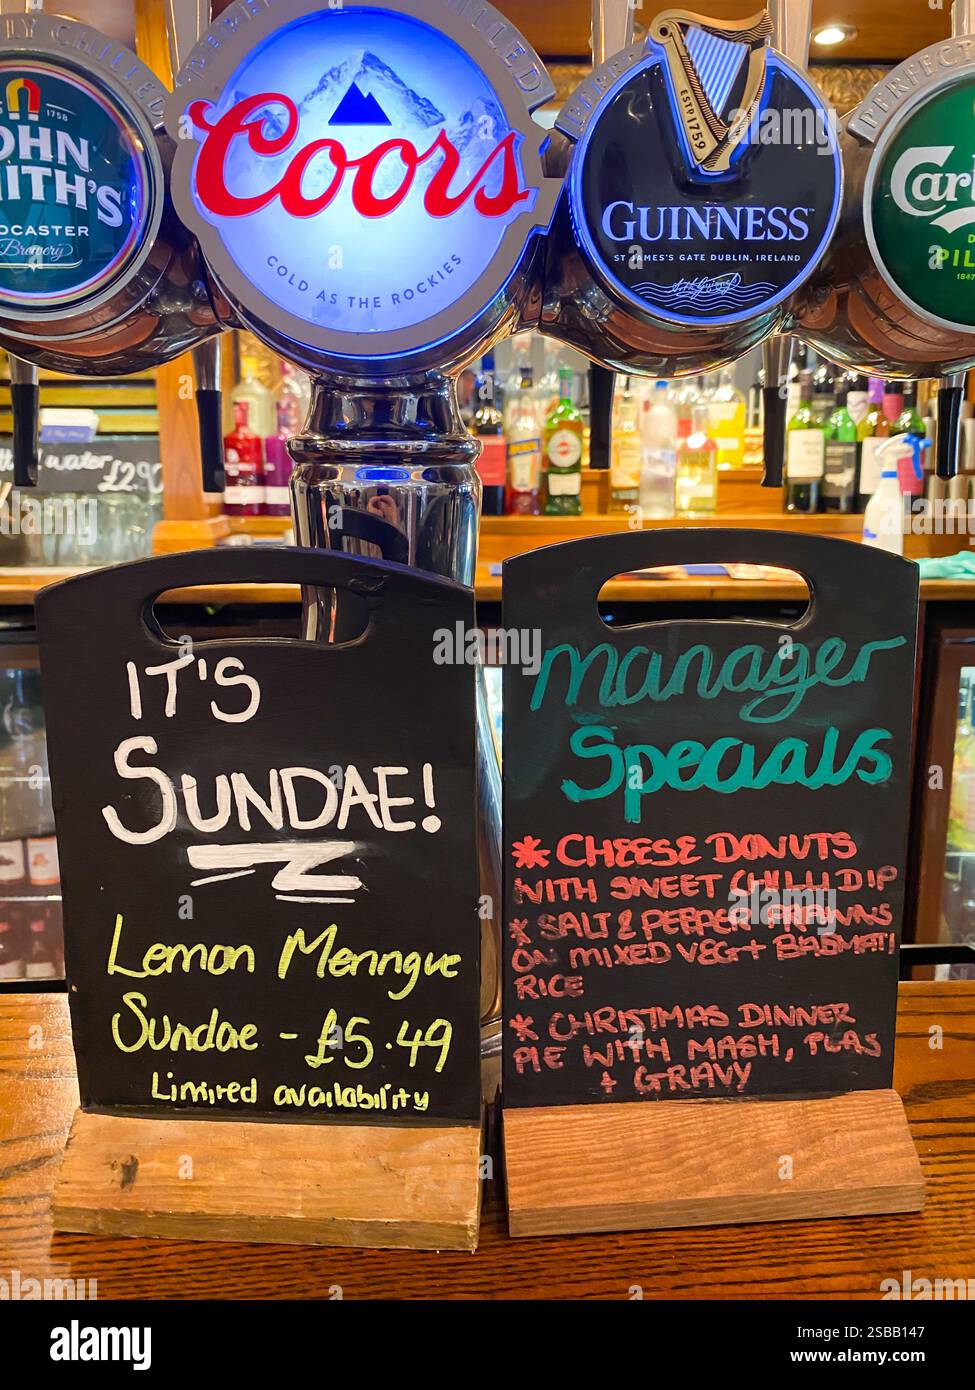 1758
JOHN
SMITH'S
TADCASTER
Brewery
Coors
COLD AS THE ROCKIES
ESTD 1759
GUINNESS
ST JAMES'S GATE DUBLIN. IRELAND
PERFECT
Carl
PIL
1847
water £2.90
IT'S
SUNDAE!
Lemon Meringue
Sundae - £5.49
Limited availability
Manager
Specials
* CHEESE DONUTS
WITH SWEET CHILLI DIP
* SALT & PEPPER PRAWNS
ON MIXED VEG + BASMATI
RICE
* CHRISTMAS DINNER
PIE WITH MASH, PEAS
+ GRAVY
alamy
Image ID: 2S8BB147
www.alamy.com